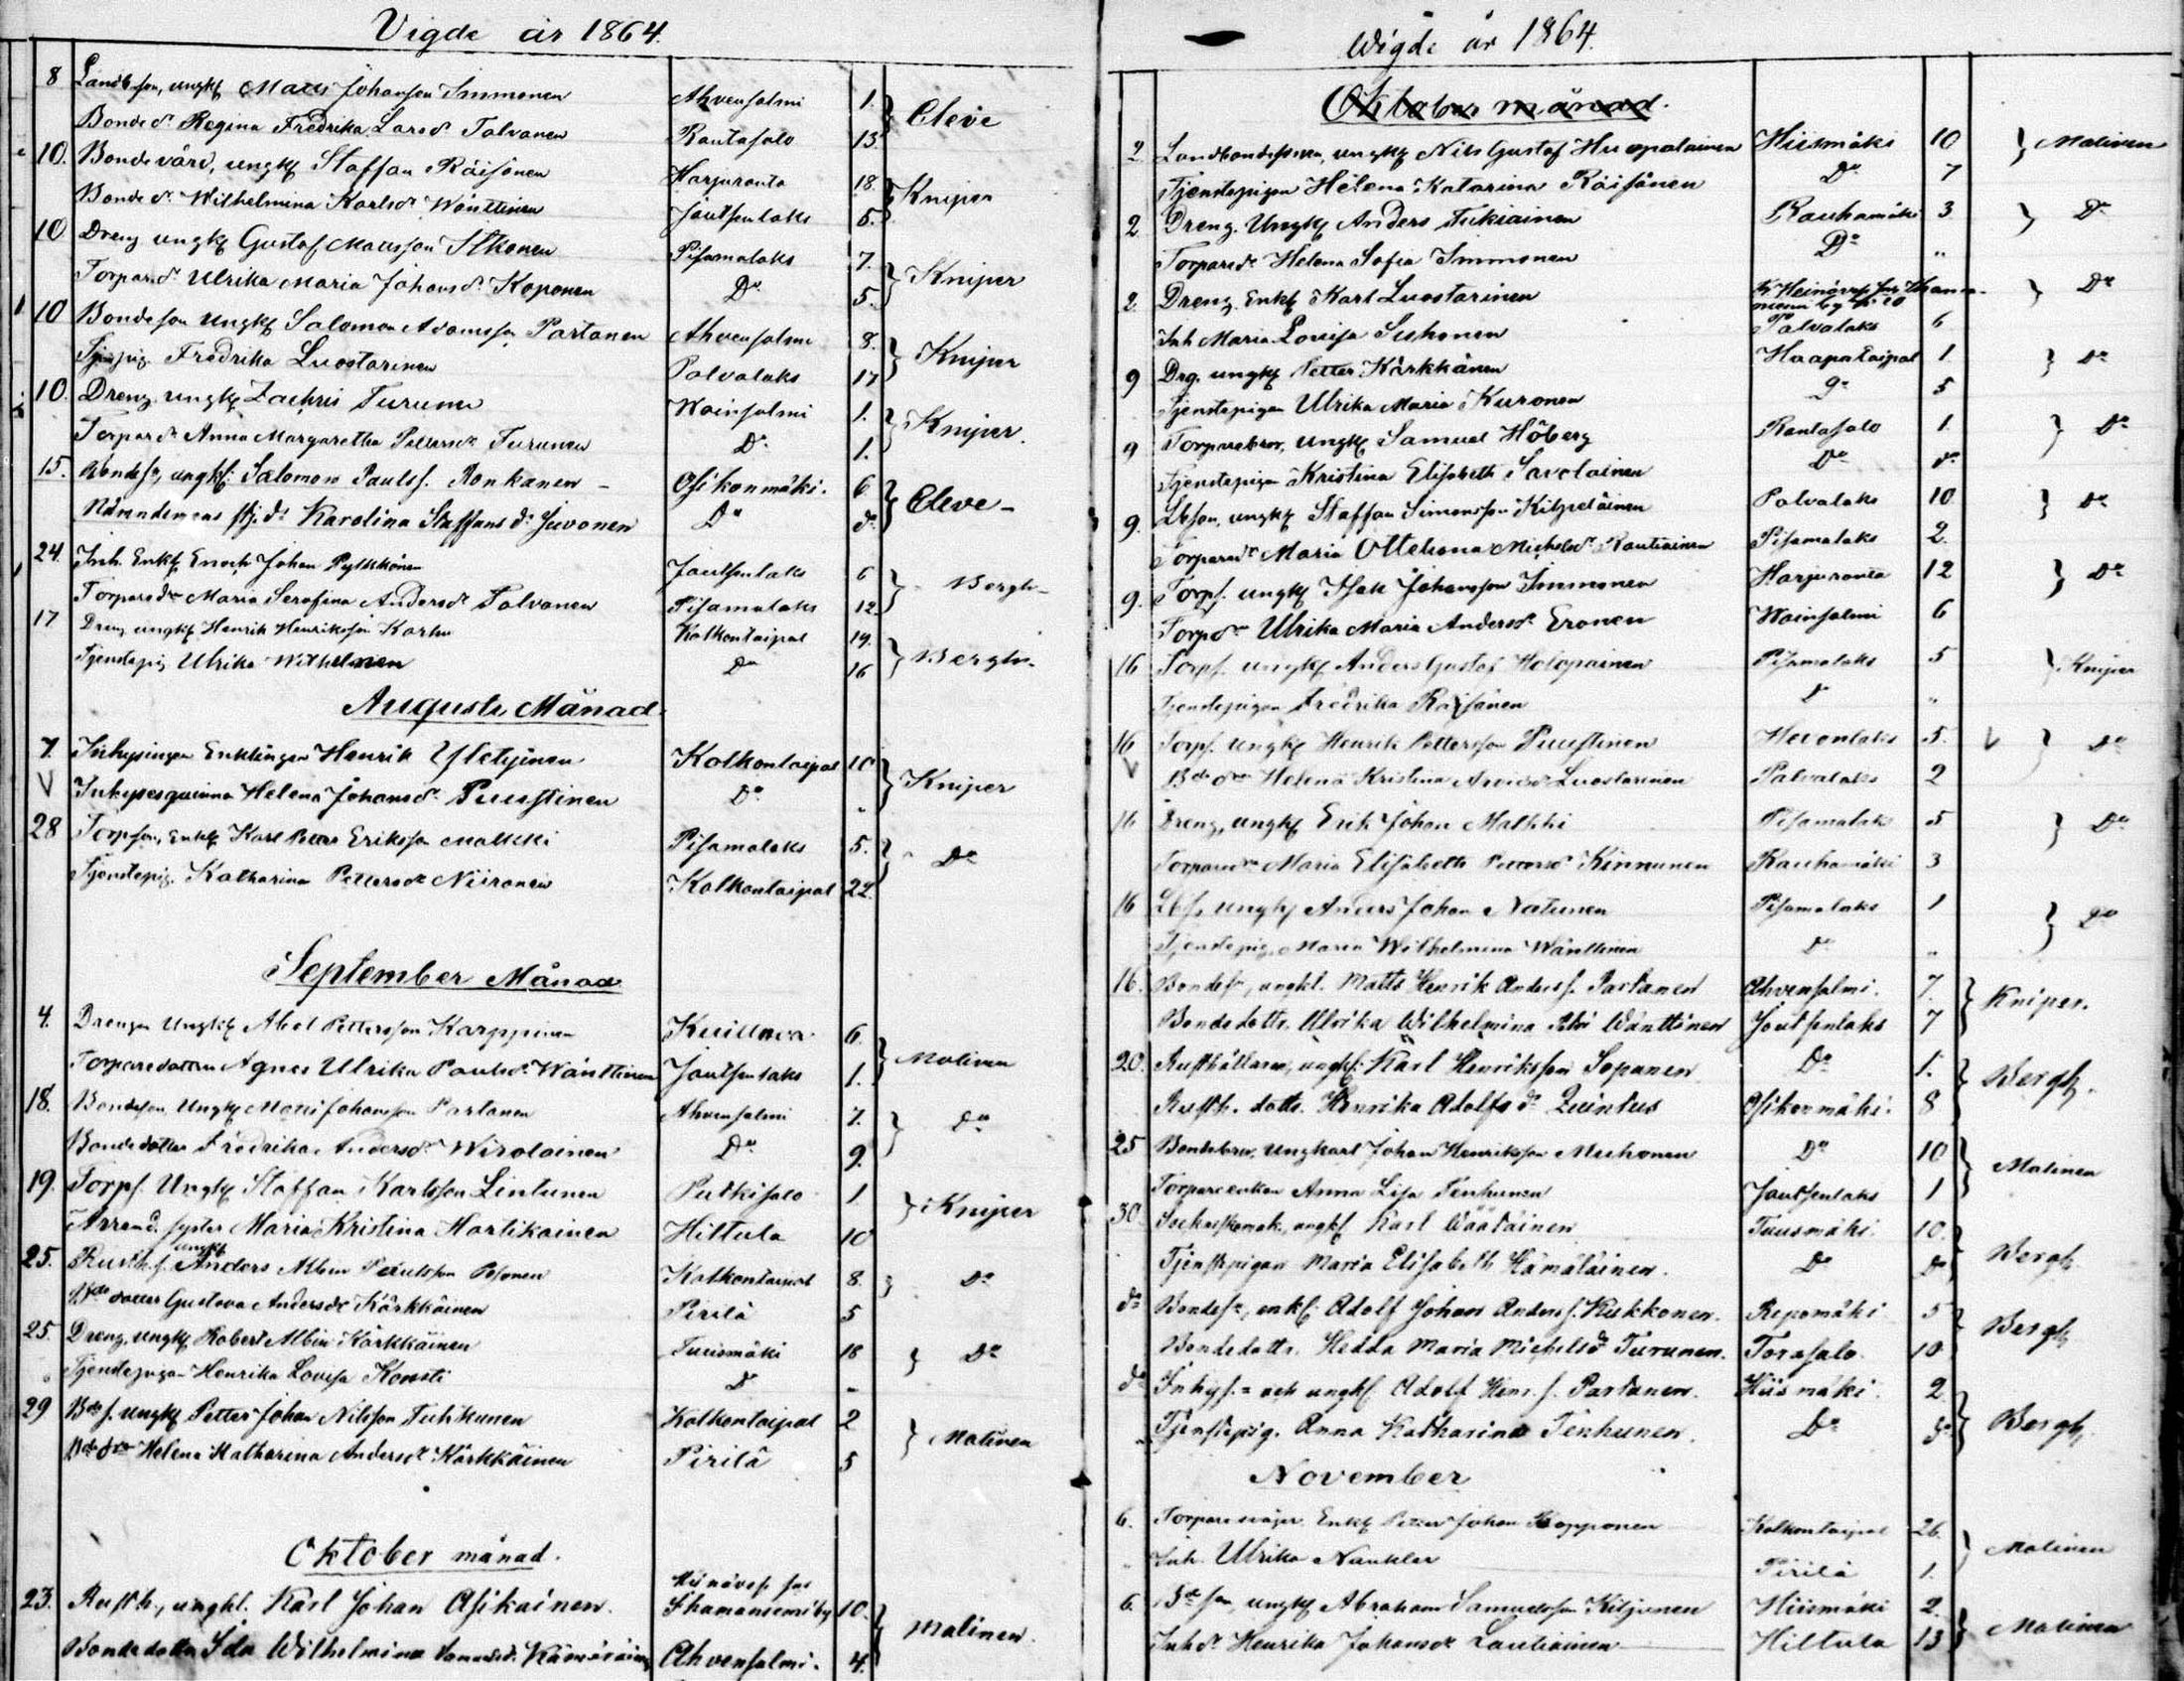 Vigde år 1864.
8 Landb.son, ungk Matts Johansson Immonen Ahvensalmi 1. } Cleve
Bonded. Regina Fredrika Larsd. Talvanen Rantasalo 13
10. Bonde våre, ungk Staffan Räisänen Harjuranta 18. } Kniper
Bonded. Wilhelmina Karlsdr Wänttinen Joutsenlaks 5.
10 Dreng ungk Gustaf Matsson Itkonen Pisamalaks 7. } Kniper
Torpared. Ulrika Maria Johansd. Koponen Do 5.
10 Bondeson Ungk Salomon Adamsson Partanen Ahvensalmi 8. } Kniper
Tjenpig Fredrika Luostarinen Palvalaks 17
10. Dreng ungk Zachris Turunen Wainsalmi 1. } Kniper.
Torpardr Anna Margaretha Pettersdr Turunen Do 1.
15. Bondesn, ungk. Salomon Paulss. Ronkanen - Osikonmäki. 6 } Cleve -
Karolina Staffansd. Juvonen Do do
24. Inh. Enkl Enoch Johan Pylkkönen Joutsenlaks 6 } Bergh-
Torparedr Maria Serafina Andersdr Talvanen Pisamalaks 12
17 Dreng ungk Henrik Henriksson Karhu Kolkontaipal 19. } Bergh-
Tjenstepig Ulrika Wilhelmina Do 16
Augusti Månad.
7. Inhysingen Enklingen Henrik Yletyinen Kolkontaipal 10 } Kniper
V Inhysesqvinna Helena Johansd. Puustinen Do "
28 Torpson, Enkl Karl Petter Eriksson Malkki Pisamalaks 5. } Do
Tjenstepig. Katharina Pettersdr Niiranen Kolkontaipal 22.
September Månad
4. Drengen Ungk Abel Pettersson Karppinen 6. } Malinen
Torparedottren Agnes Ulrika Paulsdr Wänttinen Joutsenlaks 1.
18. Bondeson, Ungk Matts Johansson Partanen Ahvensalmi 7. } Do
Bondedotter Fredrika Andersdr Wirolainen Do 9.
19. Torps. Ungk Staffan Karlsson Lintunen Putkisalo 1. } Kniper
Arrend. syster Maria Kristina Hartikainen Hiltula 10
25. Rusth.s. ungk Anders Albin Paulsson Pesonen Kolkontaipal 8. } Do
Bde dotter Gustava Andersdr Kärkkäinen Pirilä 5
25. Dreng, ungk Robert Albin Kärkkäinen Tuusmäki 18 } Do
Tjenstepigan Henrika Lovisa Konsti Do "
29 Bds. ungk Petter Johan Nilsson Tuhkunen Kolkontaipal 2 } Malinen
Bde dr Helena Katharina Andersdr Kärkkäinen Pirilä 5
Oktober månad.
23. Rusth., ungkl. Karl Johan Asikainen. 10. } Malinen.
Bondedotter Ida Wilhelmina Ahvensalmi. 4.
Wigde år 1864.
Oktober månad.
2 Landbondesonen, ungk Nils Gustaf Huopalainen Hiismäki 10 } Malinen
Tjenstepigan Helena Katarina Räisänen Do 7
2 Dreng. Ungk Anders Tukiainen Rauhamäki 3 } Do
Torparedr Helena Sofia Immonen Do "
2 Dreng. Enkl Karl Luostarinen } Do
Inh Maria Lovisa Suhonen Palvalaks 6
9 Drg. ungk Petter Kärkkänen Haapataipal 1. } Do
Tjenstepigan Ulrika Maria Kuronen Do 5
9 Torparebror, ungk Samuel Höberg Rantasalo 1. } Do
Tjenstepigan Kristina Elisabeth Savolainen Do do
9. Lbson, ungk Staffan Simonsson Kilpeläinen Palvalaks 10 } Do
Torparedr Maria Otteliana Michelsdr Rautiainen Pisamalaks 2.
9. Torps. ungk Isak Johansson Immonen Harjuranta 12 } Do
Torpdr Ulrika Maria Andersdr Eronen Wainsalmi 6
16 Torps. ungk Anders Gustaf Holopainen Pisamalaks 5 } Kniper
Tjenstepigan Fredrika Räisänen Do "
16 Torps. ungk Henrik Pettersson Puustinen Hevonlaks 5. V } Do
V Bde dr Helena Kristina Luostarinen Palvalaks 2
16 Dreng, ungk Erik Johan Malkki Pisamalaks 5 } Do
Torparedr Maria Elisabeth Pettersd Kinnunen Rauhamäki 3
16 Lbs. ungk Anders Johan Natunen Pisamalaks 1 } Do
Tjenstepig. Maria Wilhelmina Wänttinen Do "
16. Bondesn, ungkl. Matts Henrik Anderss. Partanen Ahvensalmi. 7. } Kniper.
Bondedottr. Ulrika Wilhelmina Wänttinen Joutsenlaks 7
20. Rusthållaren, ungk. Karl Henriksson Sopanen Do 1. } Bergh.
Rusth. dottr. Henrika Adolfsdr Quintus Osikonmäki. 8
25 Bondebror, Ungkarl Johan Henriksson Muhonen Do 10 } Malinen
Torpareenkan Anna Lisa Tenhunen Joutsenlaks 1
30. Sockneskomak., ungk Karl Wäätäinen Tuusmäki 10. } Bergh.
Tjenstepigan Maria Elisabeth Hämäläinen. Do Do
do Bondesn, enkl. Adolf Johan Anderss. Kukkonen. Repomäki 5 } Bergh
Bondedottr. Hedda Maria Michelsdr Turunen. Torasalo 10
do Inhys.= och ungk. Adolf Henr.s. Partanen. Hiismäki. 2 } Bergh.
Tjenstepig. Anna Katharina Tenhunen. Do do
November
6. Torparemåger Enkl Petter Johan Kapponen Kolkontaipal 26. } Malinen
Inh. Ulrika Naukler Pirilä 1.
6. Bde son, ungk Abraham Samuelsson Kiljunen Hiismäki 2. } Malinen
Inh dr Henrika Johansdr Lautiainen Hiltula 13